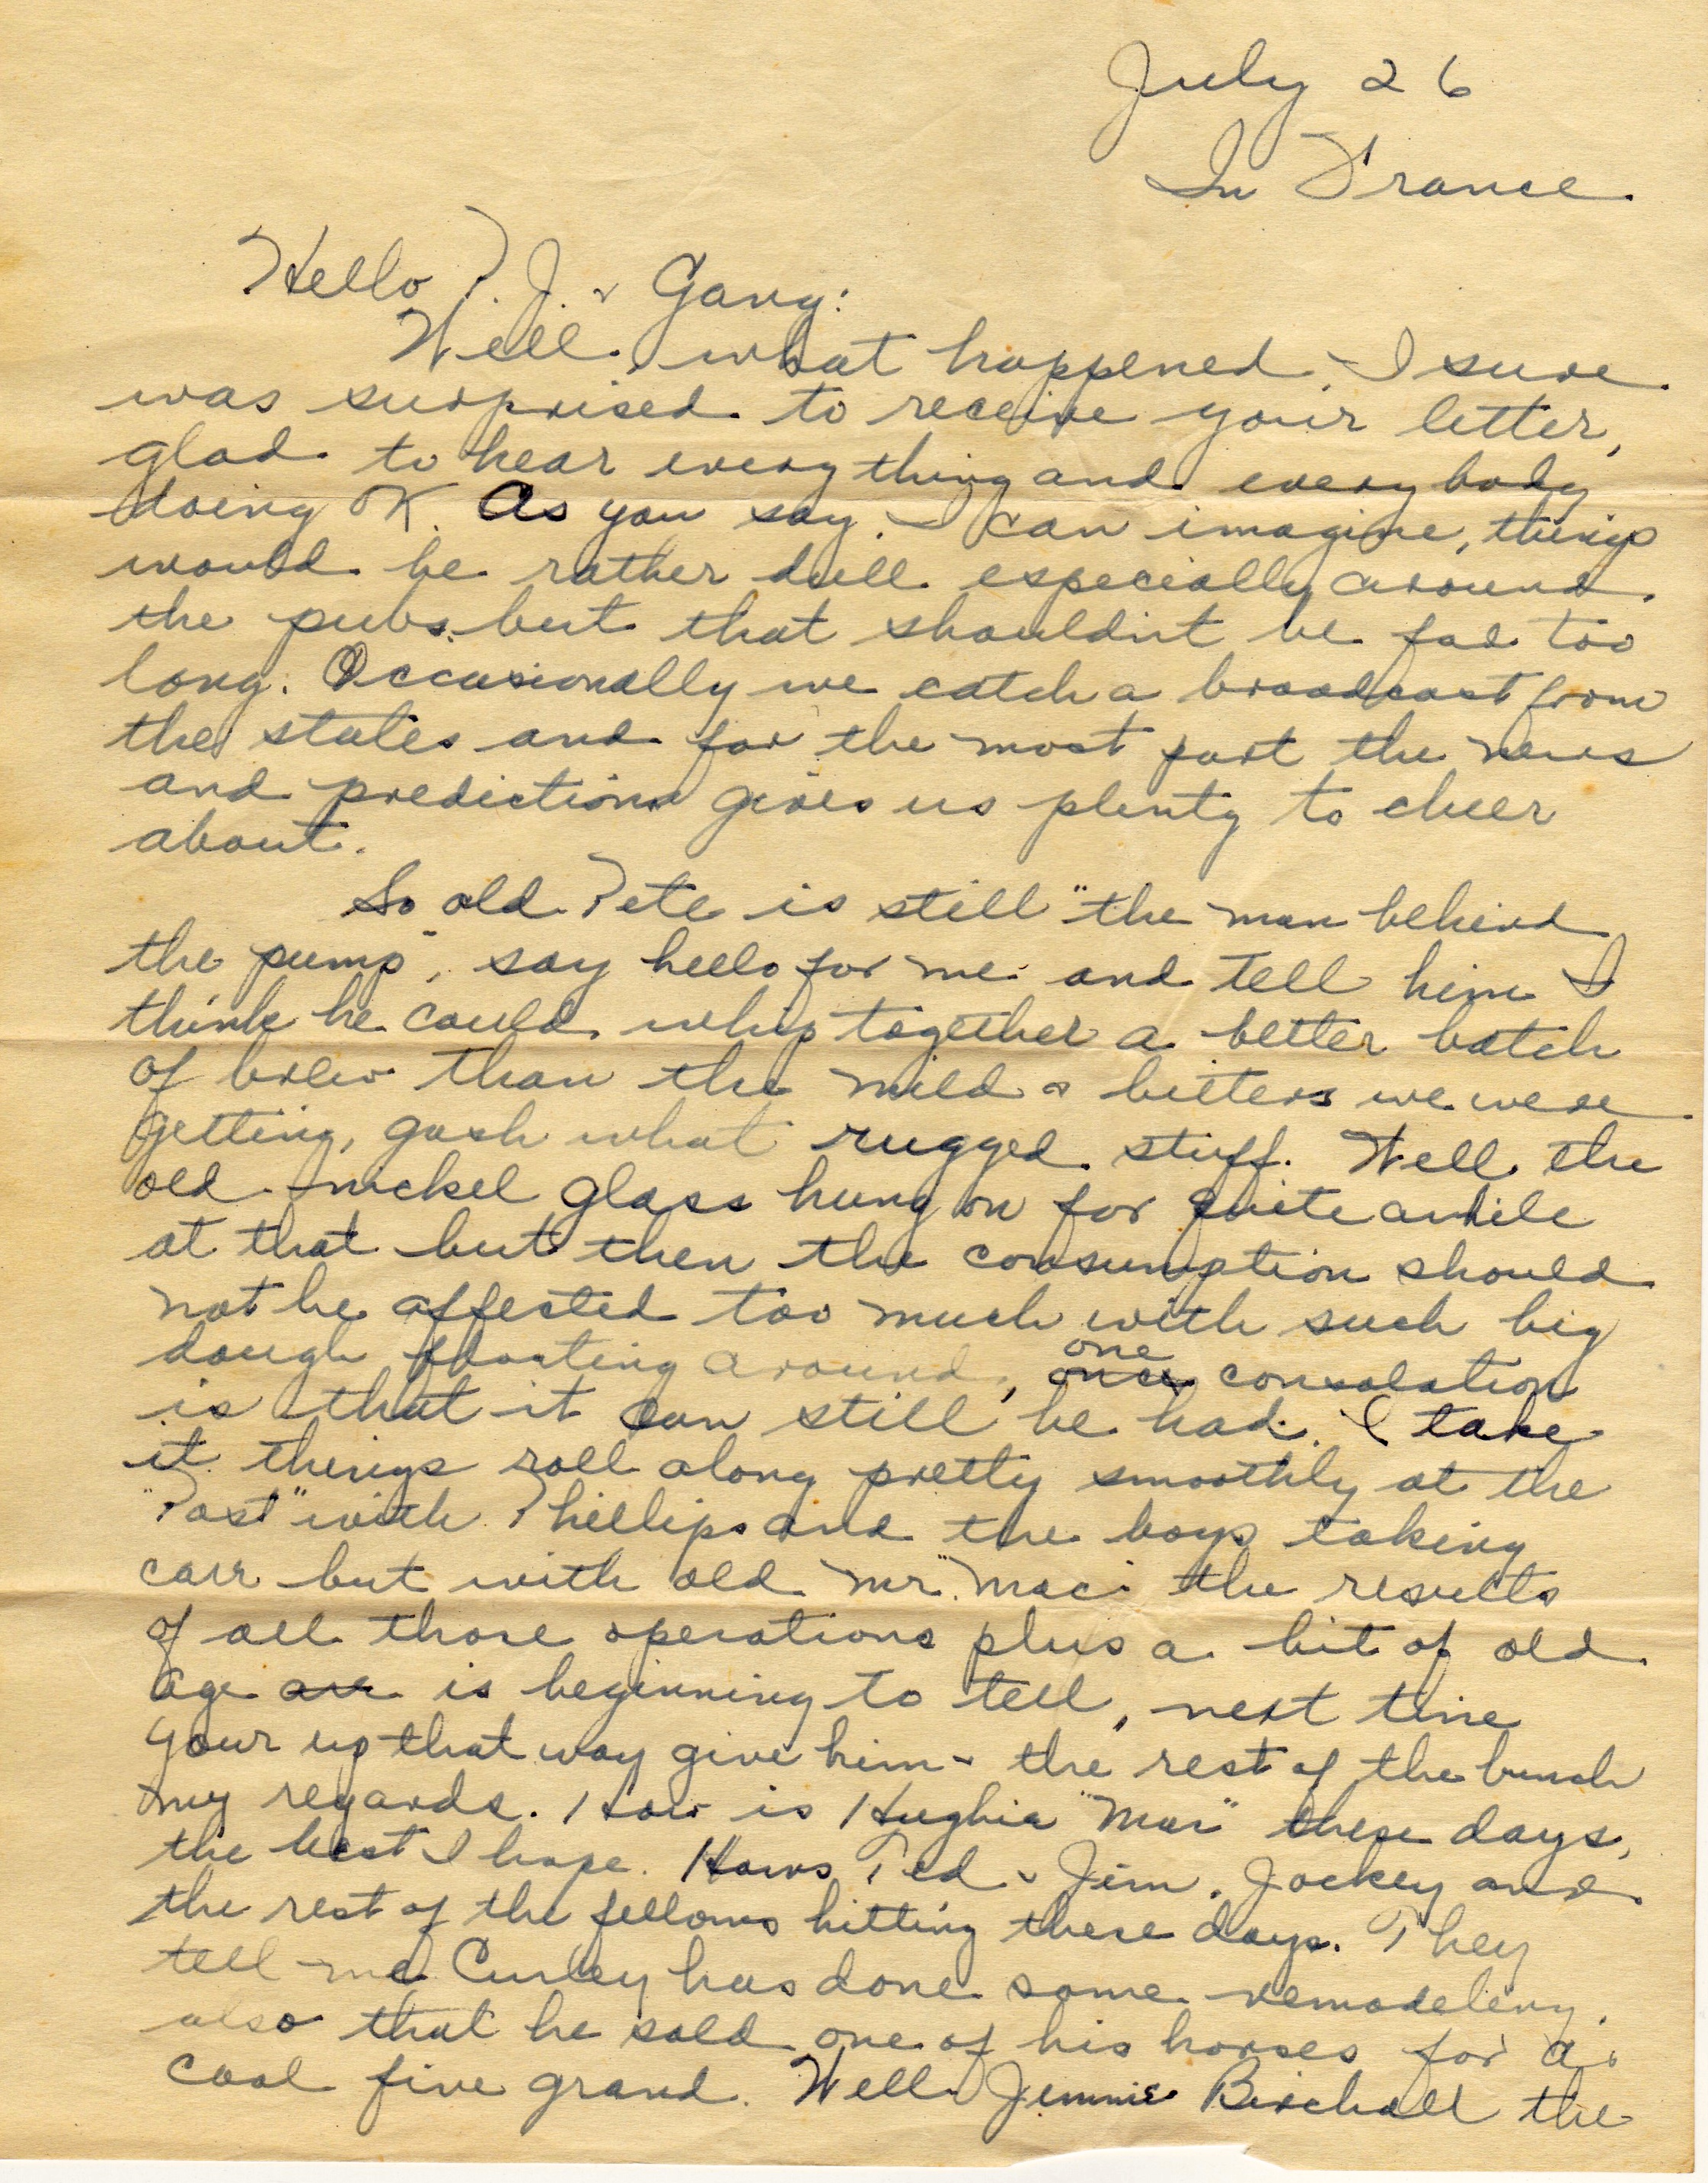 July 26
In France.
Hello P. J. & Gang:
Well, what happened, I sure
was surprised to receive your letter,
glad to hear everything and everybody
doing OK. As you say, I can imagine, things
would be rather dull especially around
the pubs, but that shouldn't be for too
long. Occasionally we catch a broadcast from
the states and for the most part the news
and predictions gives us plenty to cheer
about.
So old Pete is still "the man behind
the pump", say hello for me and tell him I
think he could whip together a better batch
of brew than the mild & bitters we were
getting, gosh what rugged stuff. Well the
old nickel glass hung on for quite awhile
at that but then the consumption should
not be affected too much with such big
dough floating around, one consolation
is that it can still be had. I take
it things roll along pretty smoothly at the
"Post" with Phillips and the boys taking
care but with old Mr. "Mac" the results
of all those operations plus a bit of old
age is beginning to tell, next time
your up that way give him & the rest of the bunch
my regards. How is Hughie "Mac" these days,
the best I hope. Hows Ted & Jim, Jockey and
the rest of the fellows hitting these days. They
tell me Curley has done some remodeleny,
also that he sold one of his horses for a
cool five grand. Well Jimmie Birchall the